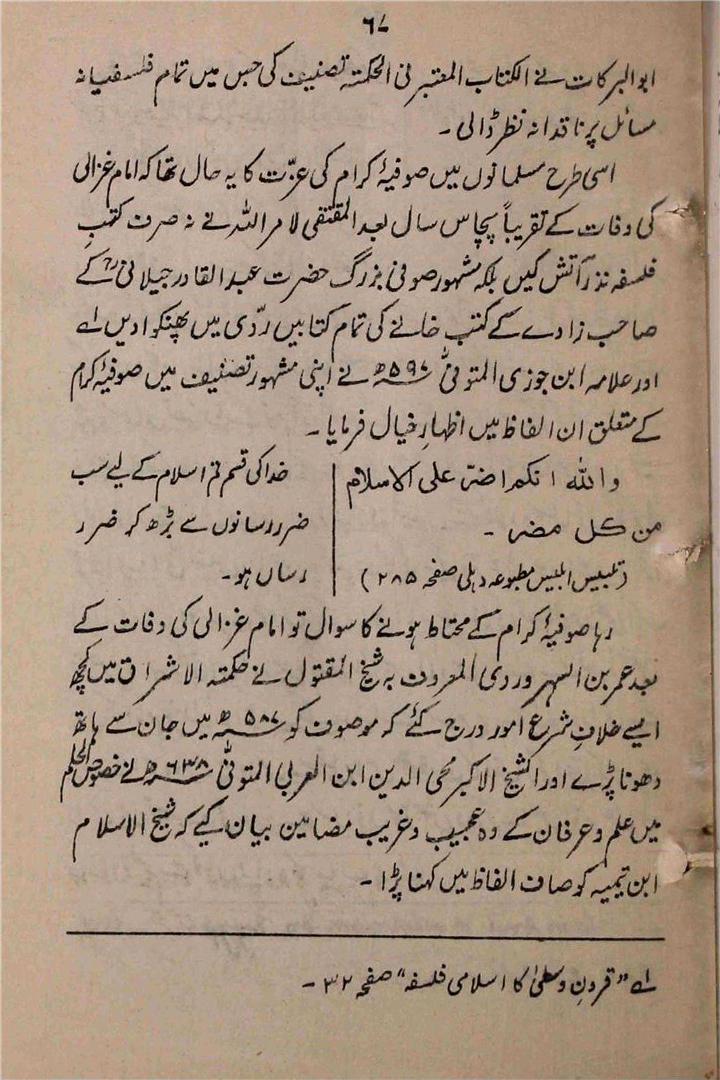 ۶۷
ابوالبرکات نے الکتاب المعتبر فی الحکمتہ تصنیف کی جس میں تمام فلسفیانہ
مسائل پر ناقدانہ نظر ڈالی ۔
اسی طرح مسلمانوں میں صوفیۂ کرام کی عزّت کا یہ حال تھا کہ امام غزالی
کی وفات کے تقریباً پچاس سال بعد المقتفی لامر اللہ نے نہ صرف کتبِ
فلسفہ نذرِ آتش کیں بلکہ مشہور صوفی بزرگ حضرت عبد القادر جیلانیؒ کے
صاحب زادے کے کتب خانے کی تمام کتابیں ردّی میں پھنکوا دیں لے
اور علامہ ابن جوزی المتوفیٰ ۵۹۷ھ نے اپنی مشہور تصنیف میں صوفیۂ کرام
کے متعلق ان الفاظ میں اظہارِ خیال فرمایا ۔
واللہ انکم اضرّ علی الاسلام
من کل مضر ۔
(تلبیس ابلیس مطبوعہ دہلی صفحہ ۲۸۵)
خدا کی قسم تم اسلام کے لیے سب
ضرر رسانوں سے بڑھ کر ضرر
رساں ہو ۔
رہا صوفیۂ کرام کے محتاط ہونے کا سوال تو امام غزالی کی وفات کے
بعد عمر بن السہروردی المعروف بہ شیخ المقتول نے حکمتہ الاشراق میں کچھ
ایسے خلافِ شرع امور درج کئے کہ موصوف کو ۵۸۷ھ میں جان سے ہاتھ
دھونا پڑے اور الشیخ الاکبر محی الدین ابن العربی المتوفیٰ ۶۳۸ھ نے خصوص الحکم
میں علم و عرفان کے وہ عجیب و غریب مضامین بیان کیے کہ شیخ الاسلام
ابن تیمیہ کو صاف الفاظ میں کہنا پڑا ۔
لے "قرونِ وسطیٰ کا اسلامی فلسفہ" صفحہ ۳۲ ۔